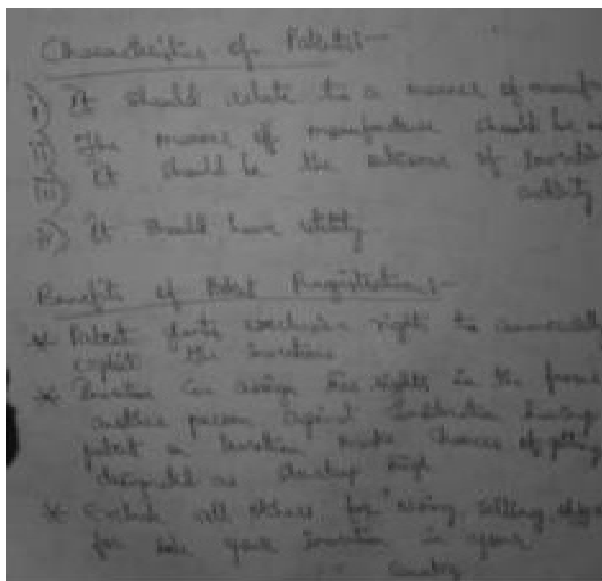 Characteristics of Patents:-
i) It should relate to a manner of manufa
ii) The manner of manufacture should be
iii) It should be the outcome of
activity
iv) It should have utility
Benefits of Patent Registration:-
* Patent exclusive right to commercially
exploit the invention
* Invention can assign rights in the
another person against having
patent on invention make chances of getting
as startup high
* Exclude all others for using, selling,
for sale your invention in your
country